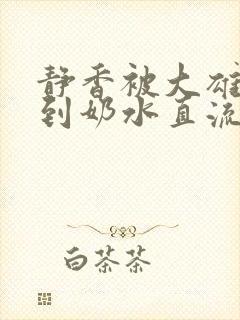 静香被大雄
到奶水直流
白茶茶